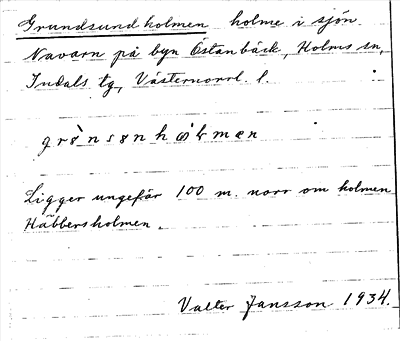 Grundsundholmen holme i sjön
Navarn på byn Östanbäck, Holms sn,
Indals tg, Västernorrl. l.
grø̀nsønhøʹlmæn
Ligger ungefär 100 m. norr om holmen
Häbbersholmen.
Valter Jansson 1934.